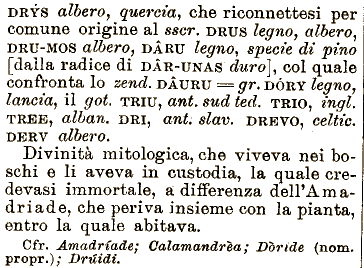 DRŶS albero, quercia, che riconnettesi per
comune origine al sscr. DRUS legno, albero,
DRU-MOS albero, DÂRU legno, specie di pino
[dalla radice di DÂR-UNAS duro], col quale
confronta lo zend. DÂURU = gr. DÓRY legno,
lancia, il got. TRIU, ant. sud ted. TRIO, ingl.
TREE, alban. DRI, ant. slav. DREVO, celtic.
DERV albero.
Divinità mitologica, che viveva nei bo-
schi e li aveva in custodia, la quale cre-
devasi immortale, a differenza dell'Ama-
driade, che periva insieme con la pianta,
entro la quale abitava.
Cfr. Amadríade; Calamandrèa; Dòride (nom.
propr.); Drúidi.